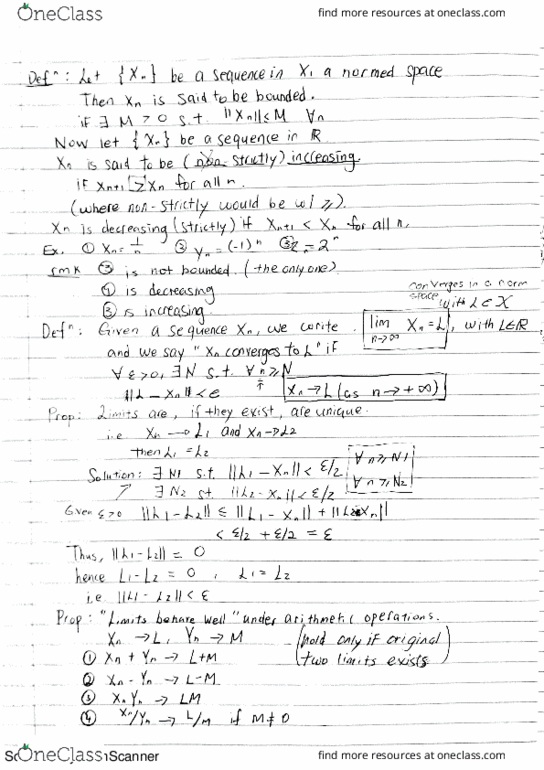 OneClass
find more resources at oneclass.com
Defⁿ: Let {Xn} be a sequence in X, a normed space
Then Xn is said to be bounded.
if ∃ M > 0 s.t. ||Xn|| ≤ M ∀n
Now let {Xn} be a sequence in ℝ
Xn is said to be (non strictly) increasing.
if Xn+1 > Xn for all n.
(where non-strictly would be w/ ≥).
Xn is decreasing (strictly) if Xn+1 < Xn for all n.
Ex. ① Xn = 1/n ② Yn = (-1)ⁿ ③ Z = 2ⁿ
rmk ③ is not bounded. (the only one).
① is decreasing
③ is increasing.
converges in a norm space with L ∈ X
Defⁿ: Given a sequence Xn, we write lim n→∞ Xn = L, with L∈ℝ
and we say "Xn converges to L" if
∀ε>0, ∃N s.t. ∀n≥N
||L - Xn|| < ε
Xn → L (as n → +∞)
Prop: Limits are, if they exist, are unique.
i.e Xn → L1 and Xn → L2
then L1 = L2
Solution: ∃ N1 s.t. ||L1 - Xn|| < ε/2 ∀n≥N1
∃ N2 st. ||L2 - Xn|| < ε/2 ∀n≥N2
Given ε>0 ||L1 - L2|| ≤ ||L1 - Xn|| + ||L2 - Xn||
< ε/2 + ε/2 = ε
Thus, ||L1 - L2|| = 0
hence L1 - L2 = 0, L1 = L2
i.e ||L1 - L2|| < ε
Prop: "Limits behave well" under arithmetic operations.
Xn → L, Yn → M (hold only if original two limits exists)
① Xn + Yn → L+M
② Xn - Yn → L-M
③ XnYn → LM
④ Xn/Yn → L/M if M ≠ 0
OneClass
Scanner
find more resources at oneclass.com